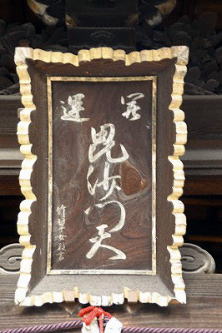 開運
毘沙門天